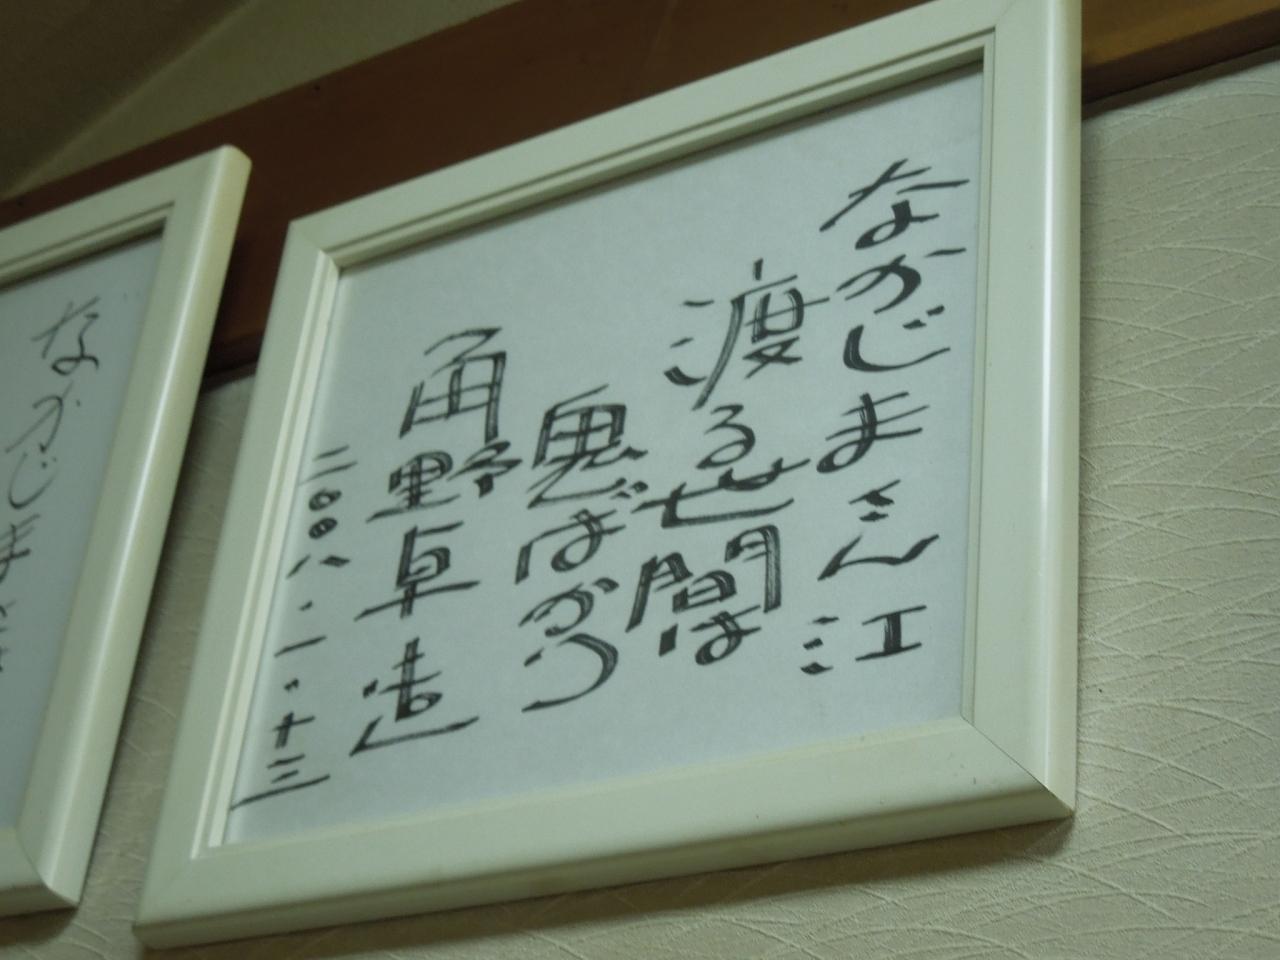 なかじまさん江
渡る世間は
鬼ばかり
角野卓造
二〇〇八・一・十三
なかじま